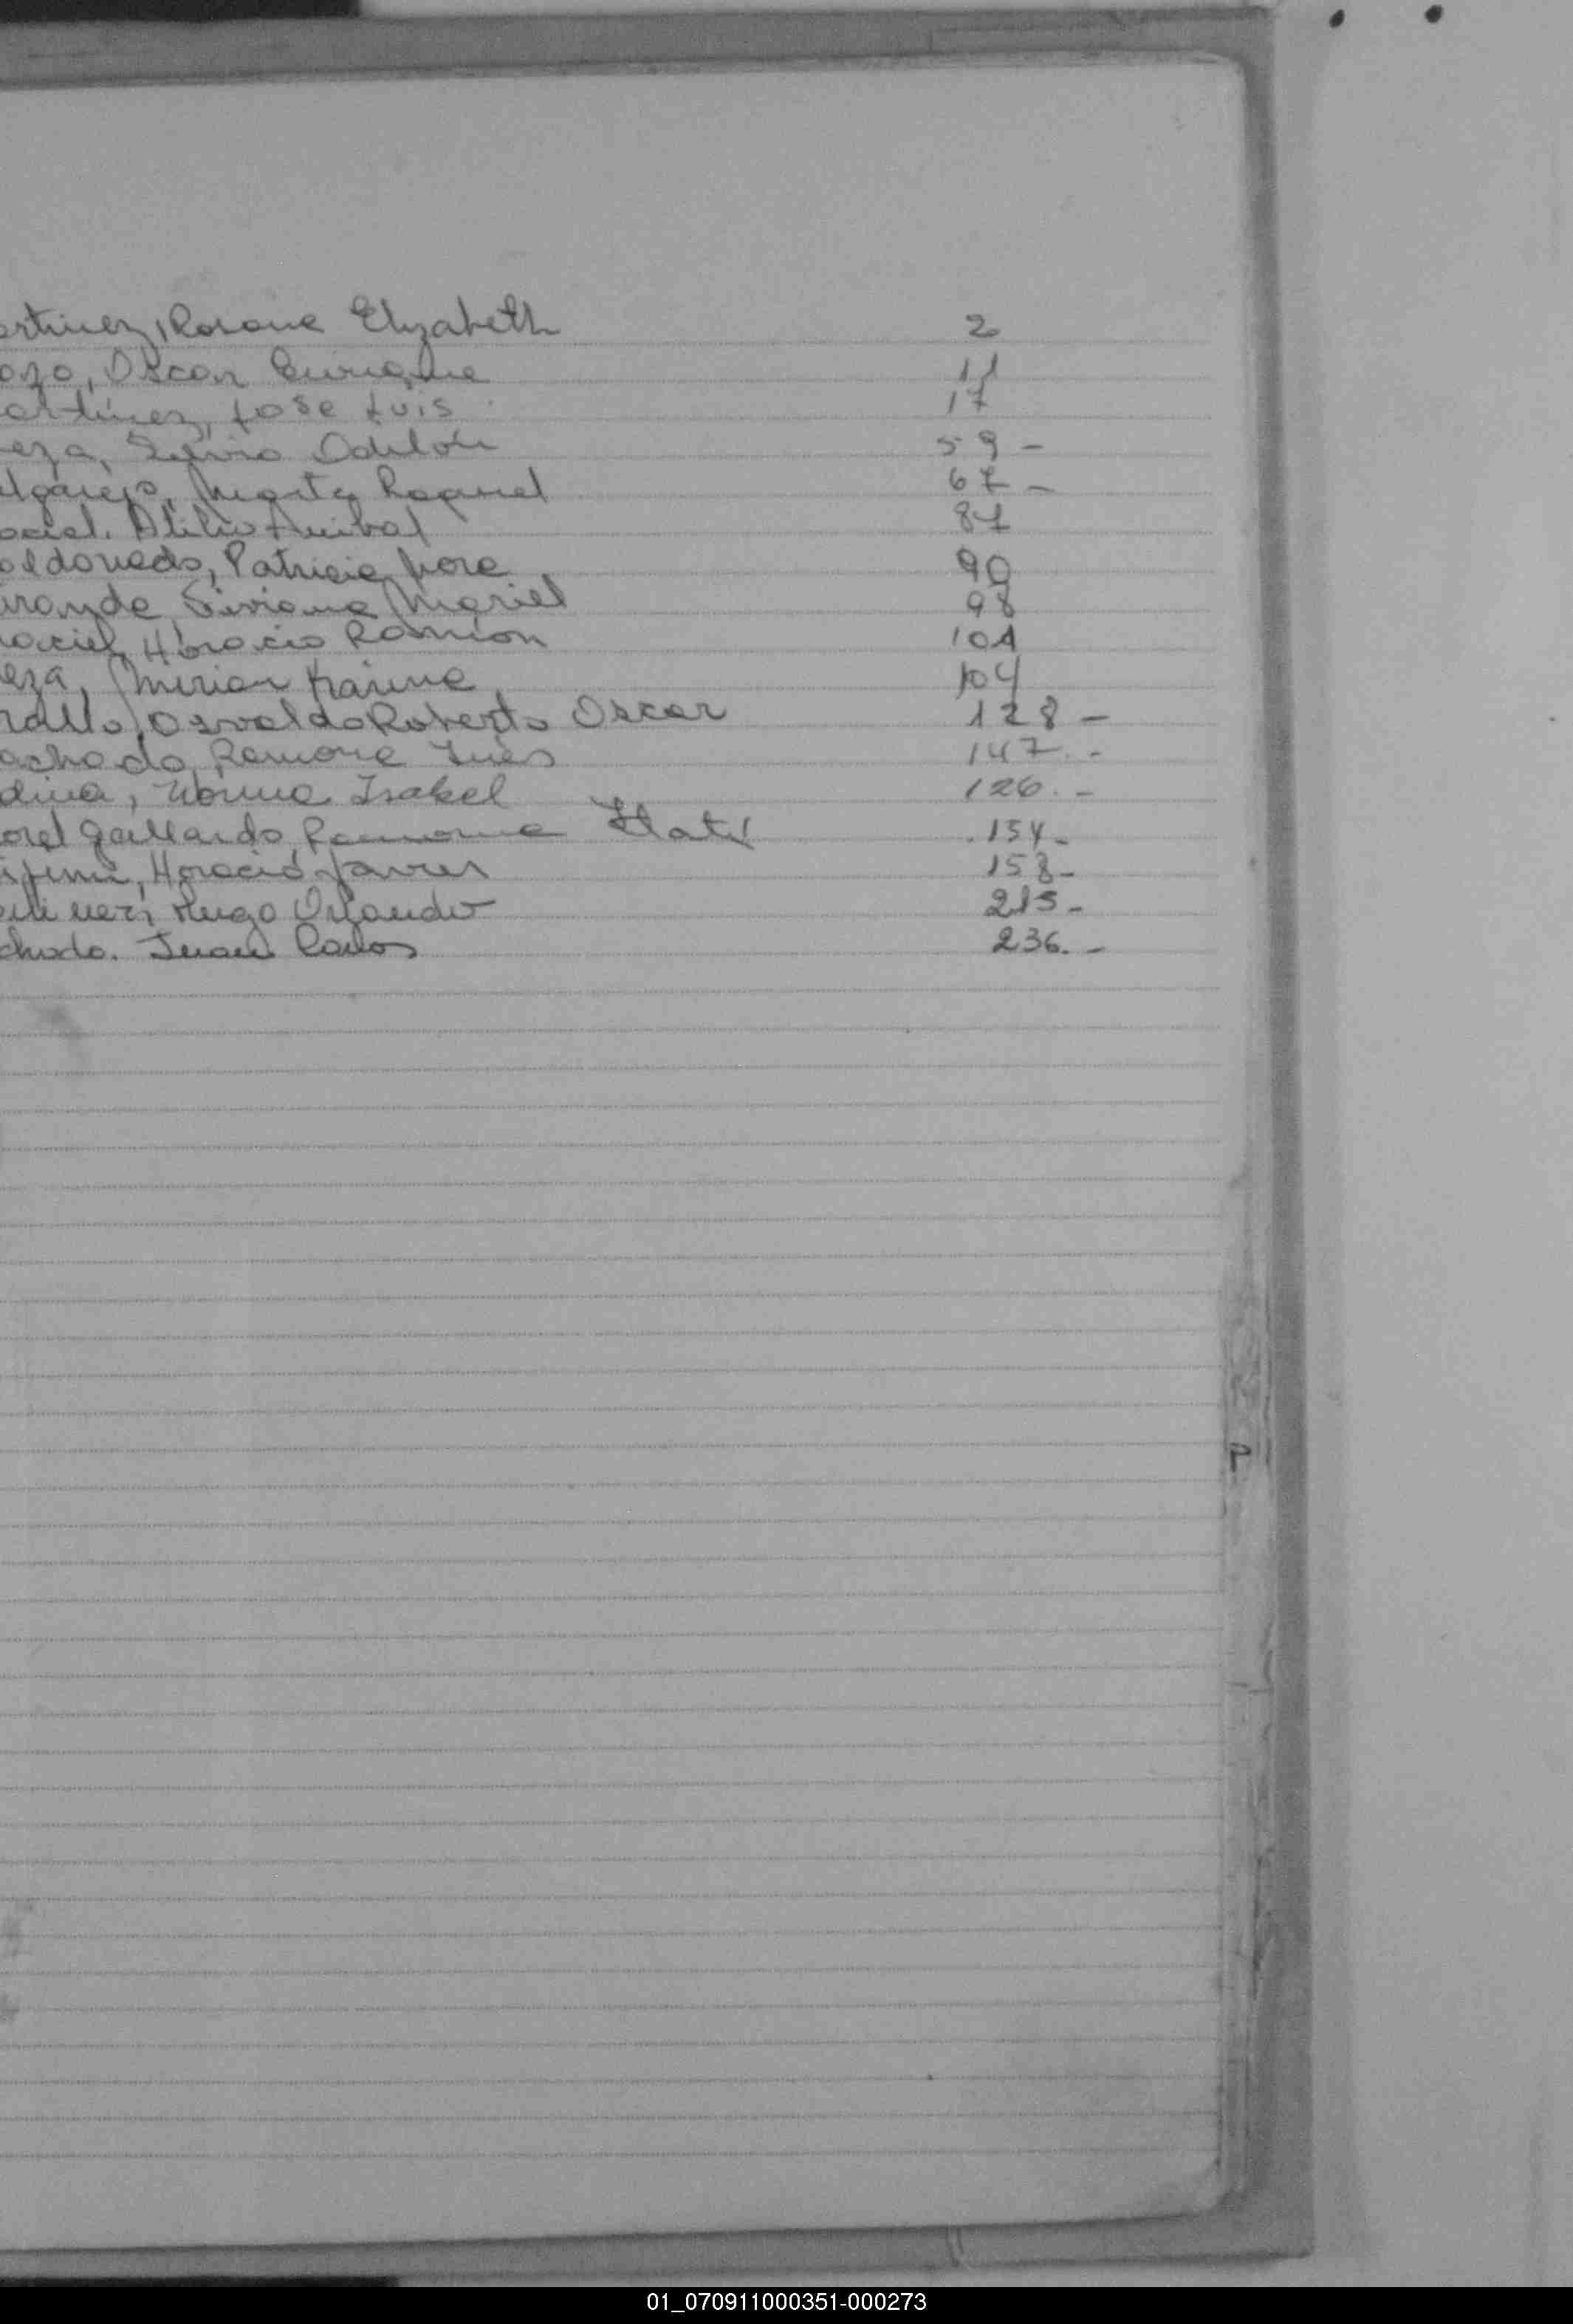 artinez, Rosana Elizabeth 2
ozo, Oscar Enrique 11
artínez, Jose Luis 17
eza, Silvio Odilón 59 -
elgarejo, Marta Raquel 67 -
aciel. Atilio Anibal 87
aldonado, Patricia Nora 90
iranda, Viviana Mariel 98
aciel, Horacio Ramón 101
eza, Mirian Karina 104
Osvaldo Roberto Oscar 128 -
achado, Ramona Inés 147. -
dina, Norma Isabel 126. -
orel Gallardo Ramona Itatí 154 -
Horacio Javier 158 -
Hugo Orlando 215 -
chado. Juan Carlos 236. -
P
01_070911000351-000273